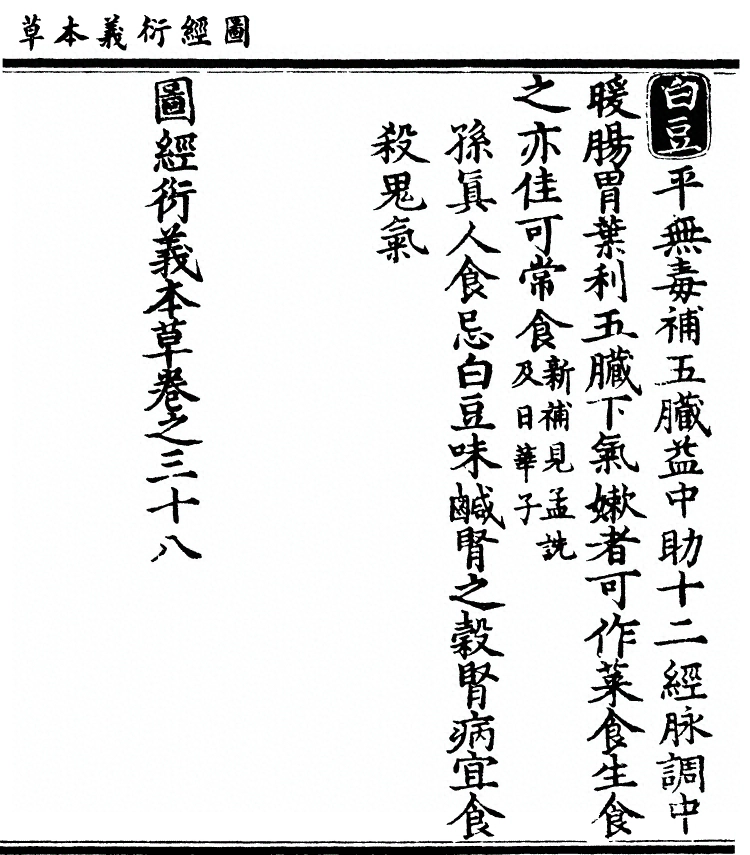 圖經衍義本草
白豆平無毒補五臟益中助十二經脉調中
暖腸胃葉利五臟下氣嫩者可作菜食生食
之亦佳可常食新補見孟詵及日華子
孫眞人食忌白豆味鹹腎之穀腎病宜食
殺鬼氣
圖經衍義本草卷之三十八